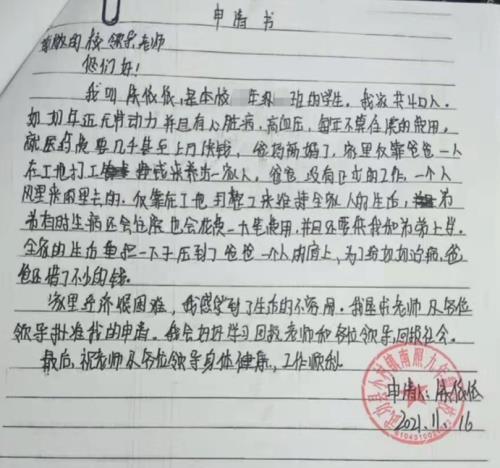 申请书
尊敬的校领导、老师
您们好!
我叫陈依依,是本校 年级 班的学生。我家共4口人。
奶奶年迈无劳动力并且有心脏病,高血压,每年不算住院的费用,
就医药费要几千甚至上万块钱,爸妈 婚了,家里仅靠爸爸一人
在工地打工 来养活一家人,爸爸没有正式的工作,一个人
风里来雨里去的,仅靠在工地打散工来维持全家人的生活,弟
弟有时生病还会住院也会花费一大笔费用,并且还要供我和弟弟上学。
全家的生活重担一下子压到了爸爸一个人的肩上,为了给奶奶治病,爸
爸还借了不少的钱。
家里经济很困难,我感受到了生活的不容易。我恳求老师及各位
领导批准我的申请。我会好好学习回报老师和各位领导,回报社会。
最后,祝老师及各位领导身体健康,工作顺利。
申请人:陈依依
2021.11.16